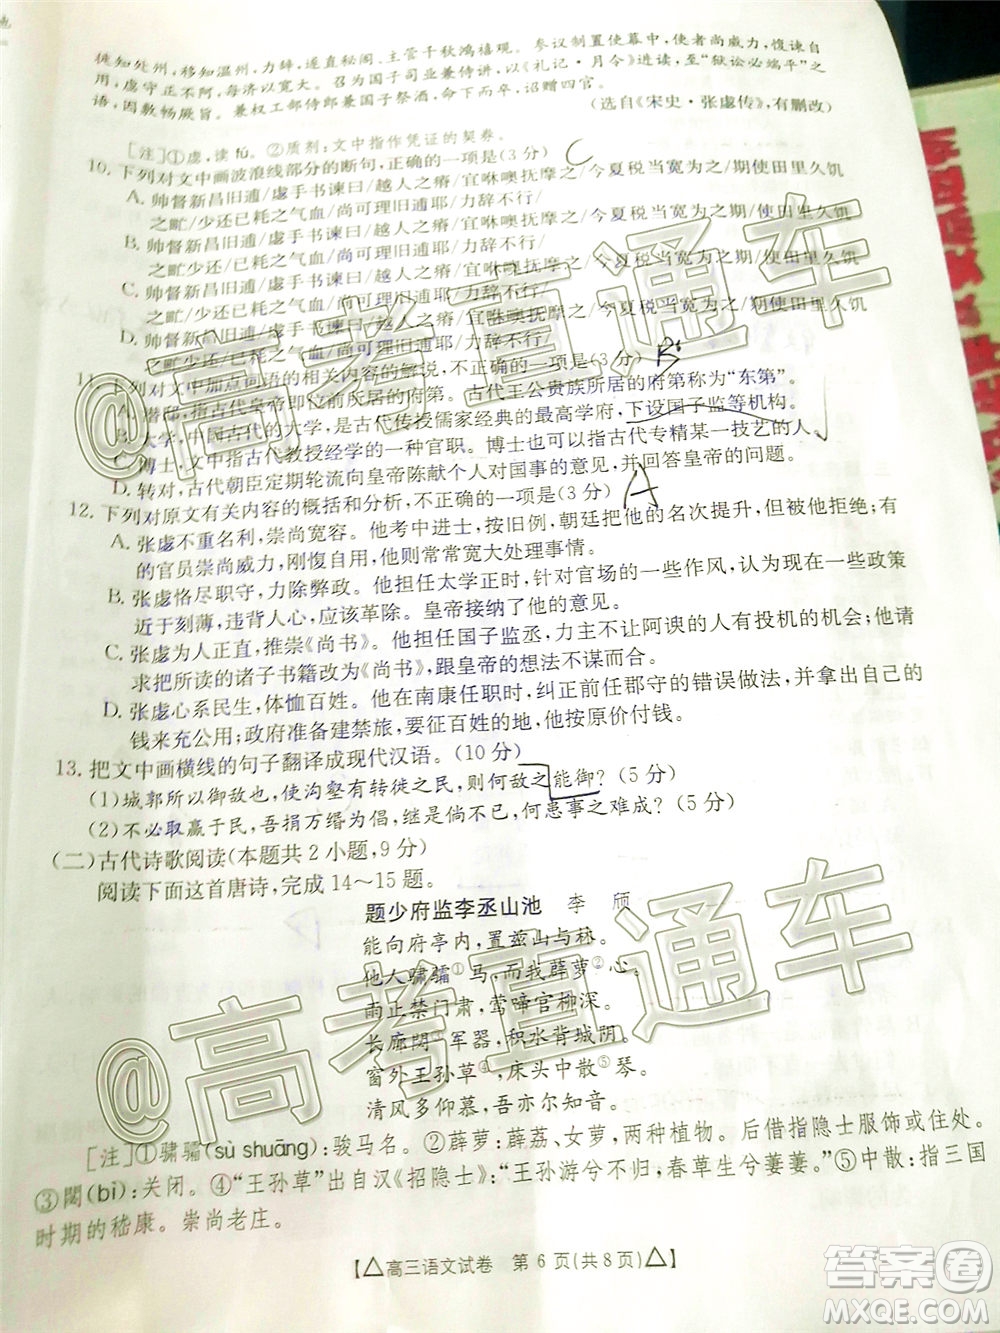 徙知处州,移知温州,力辞,遂直秘阁、主管千秋鸿禧观。参议制置使幕中,使者尚威力,虙谏自
用,虙守正不阿,每济以宽大。召为国子司业兼侍讲,以《礼记·月令》进读,至“狱讼必端平”之
语,因敷畅厥旨。兼权工部侍郎兼国子祭酒,命下而卒,诏赠四官。
(选自《宋史·张虙传》,有删改)
[注]①虙,读fú。②质剂:文中指作凭证的契券。
10. 下列对文中画波浪线部分的断句,正确的一项是(3分) C
A. 帅督新昌旧逋/虙手书谏曰/越人之瘠/宜咻噢抚摩/今夏税当宽为之/期使田里久饥
之甿/少还已耗之气血/尚可理旧逋耶/力辞不行/
B. 帅督新昌旧逋/虙手书谏曰/越人之瘠/宜咻噢抚摩/今夏税当宽为之期/使田里久饥
之甿/少还已耗之气血/尚可理旧逋耶/力辞不行/
C. 帅督新昌旧逋/虙手书谏曰/越人之瘠/宜咻噢抚摩之/今夏税当宽为之期/使田里久饥
之甿/少还已耗之气血/尚可理旧逋耶/力辞不行/
D. 帅督新昌旧逋/虙手书谏曰/越人之瘠/宜咻噢抚摩之/今夏税当宽为之/期使田里久饥
之甿少还/已耗之气血/尚可理旧逋耶/力辞不行/
11. 下列对文中加点词语的相关内容的解说,不正确的一项是(3分) B
A. 潜邸,指古代皇帝即位前所居的府第。古代王公贵族所居的府第称为“东第”。
B. 太学,中国古代的大学,是古代传授儒家经典的最高学府,下设国子监等机构。
C. 博士,文中指古代教授经学的一种官职。博士也可以指古代专精某一技艺的人。
D. 转对,古代朝臣定期轮流向皇帝陈献个人对国事的意见,并回答皇帝的问题。
12. 下列对原文有关内容的概括和分析,不正确的一项是(3分) A
A. 张虙不重名利,崇尚宽容。他考中进士,按旧例,朝廷要把他的名次提升,有
的官员崇尚威力,刚愎自用,他经常宽大处理事情。
B. 张虙恪尽职守,力除弊政。他担任太学正时,针对官场的一些作风,认为法令
近于刻薄,违背人心,应该革除。皇帝接纳了他的意见。
C. 张虙为人正直,推崇《尚书》。他任国子监丞,力主不让阿谀的人有投机的机会;他请
求把所读的诸子书籍改为《尚书》,跟皇帝的想法不谋而合。
D. 张虙心系民生,体恤百姓。在南康任职时,纠正前任郡守的错误做法,将自己的
钱来充公用;政府准备建禁旅,要征百姓的地,他按原价付钱。
13. 把文中画横线的句子翻译成现代汉语。(10分)
(1)城郭所以御敌也,使沟壑有转徙之民,则何敌之能御?(5分)
(2)不必取赢于民,吾捐万缗为倡,继是倘不已,何患事之难成?(5分)
(二)古代诗歌阅读(本题共2小题,9分)
阅读下面这首唐诗,完成14~15题。
题少府监李丞山池 李 颀
能向府亭内,置兹山与林。
他人骕骦①马,而我薜萝②心。
雨止禁门肃,莺啼官柳深。
长廊閟③军器,积水背城阴。
窗外王孙草④,床头中散⑤琴。
清风多仰慕,吾亦尔知音。
[注]①骕骦(sù shuāng):骏马名。②薜萝:薜荔、女萝,两种植物。后借指隐士服饰或住处。
③閟(bì):关闭。④“王孙草”出自汉《招隐士》:“王孙游兮不归,春草生兮萋萋。”⑤中散:指三国
时期的嵇康。崇尚老庄。
【△高三语文试卷 第 6 页(共 8 页)△】
@高考直通车
@高考直通车
答案圈
MXQE.COM